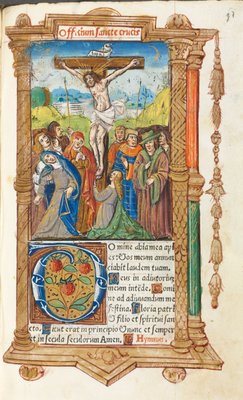 Officium sancte crucis
Domine labia mea ape
ries: Et os meum annun
ciabit laudem tuam.
Deus in adiutorium
meum intēde. Do
mine ad adiuuandum me
festina. Gloria patri
Et filio et spiritui san
cto. Sicut erat in principio Et nunc et semper
et in secula seculorum Amen. Hymnus.